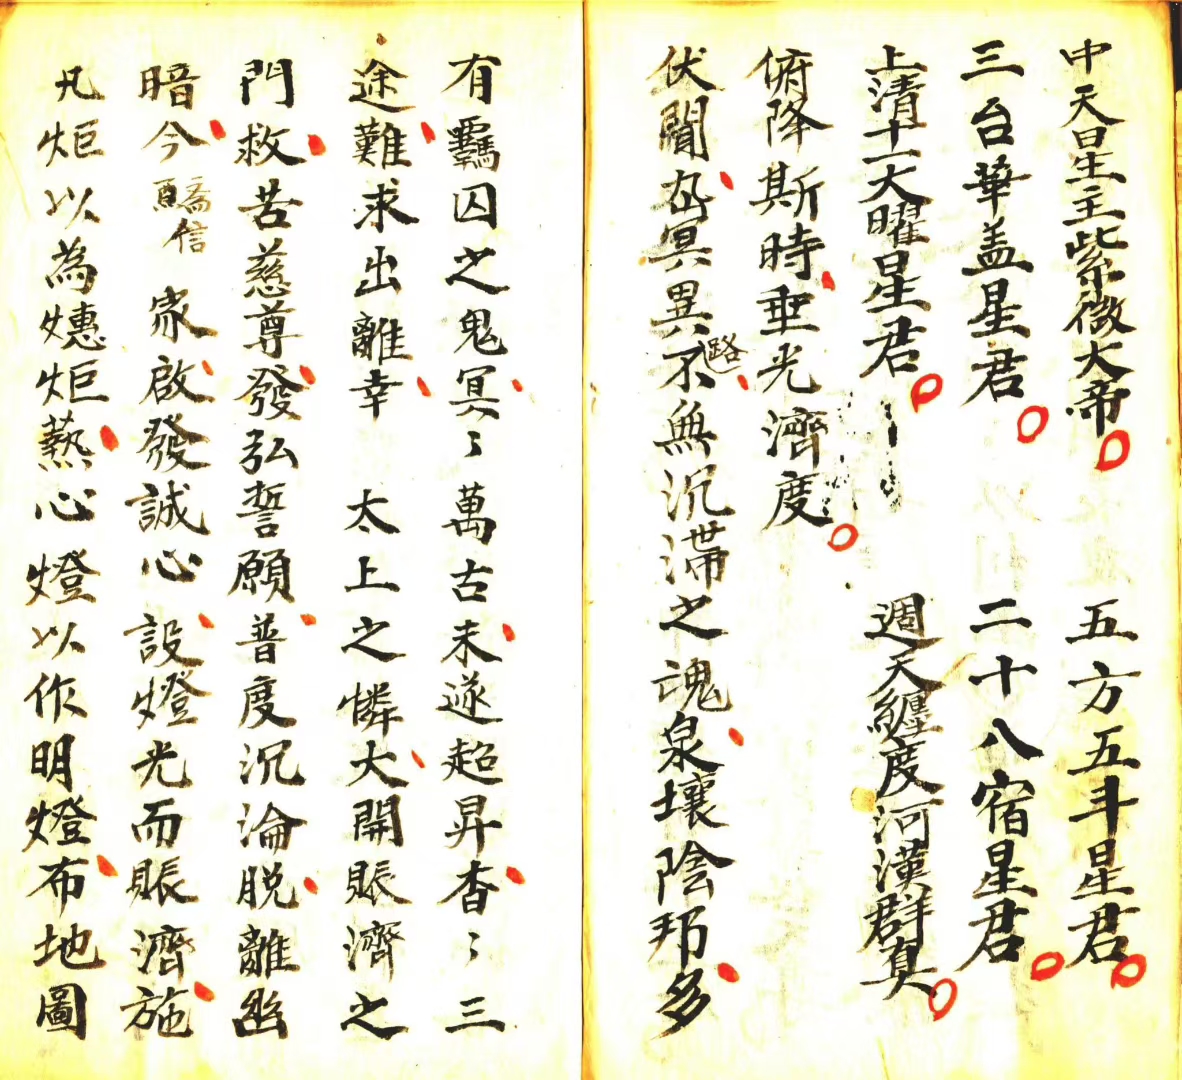 中天星主紫微大帝 五方五斗星君
三台華盖星君 二十八宿星君
上清十一大曜星君 週天纏度河漢群真
俯降斯時垂光濟度
伏聞冥異路不無沉滯之魂泉壤陰邦多
有羈囚之鬼冥〻萬古未遂超昇杳〻三
途難求出離幸 太上之憐大開賑濟之
門救苦慈尊發弘誓願普度沉淪脱離幽
暗今 信 家啟發誠心設燈光而賑濟施
凡炬以為炬爇心燈以作明燈布地圖